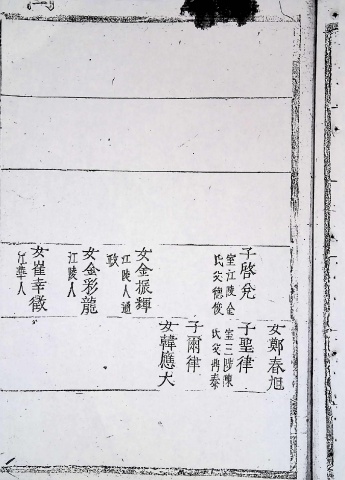 子啓兌
室江陵金
氏父德俊
女金振輝
江陵人通
政
女金彩龍
江陵人
女崔幸徵
江華人
女鄭春旭
子聖律
室三陟陳
氏父興泰
子爾律
女韓應大